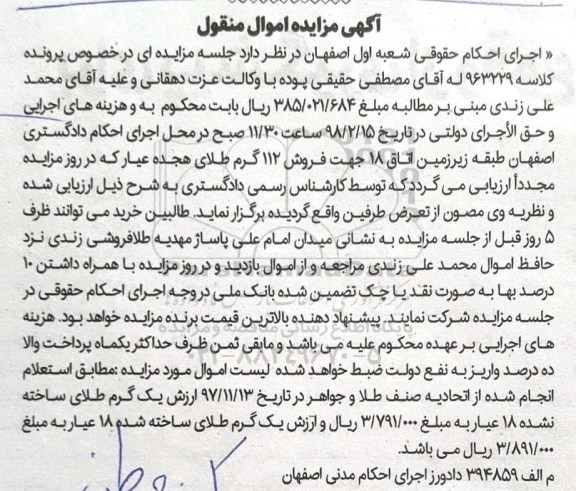 آگهی مزایده اموال منقول
« اجرای احکام حقوقی شعبه اول اصفهان در نظر دارد جلسه مزایده ای در خصوص پرونده
کلاسه ۹۶۳۲۲۹ له آقای مصطفی حقیقی پوده با وکالت عزت دهقانی و علیه آقای محمد
علی زندی مبنی بر مطالبه مبلغ ۳۸۵/۰۲۱/۶۸۴ ریال بابت محکوم به و هزینه های اجرایی
و حق الأجرای دولتی در تاریخ ۹۸/۲/۱۵ ساعت ۱۱/۳۰ صبح در محل اجرای احکام دادگستری
اصفهان طبقه زیرزمین اتاق ۱۸ جهت فروش ۱۱۲ گرم طلای هجده عیار که در روز مزایده
مجدداً ارزیابی می گردد که توسط کارشناس رسمی دادگستری به شرح ذیل ارزیابی شده
و نظریه وی مصون از تعرض طرفین واقع گردیده برگزار نماید. طالبین خرید می توانند ظرف
۵ روز قبل از جلسه مزایده به نشانی میدان امام علی پاساژ مهدیه طلافروشی زندی نزد
حافظ اموال محمد علی زندی مراجعه و از اموال بازدید و در روز مزایده با همراه داشتن ۱۰
درصد بها به صورت نقد یا چک تضمین شده بانک ملی در وجه اجرای احکام حقوقی در
جلسه مزایده شرکت نمایند. پیشنهاد دهنده بالاترین قیمت برنده مزایده خواهد بود. هزینه
های اجرایی بر عهده محکوم علیه می باشد و مابقی ثمن ظرف حداکثر یکماه پرداخت والا
ده درصد واریز به نفع دولت ضبط خواهد شده لیست اموال مورد مزایده :مطابق استعلام
انجام شده از اتحادیه صنف طلا و جواهر در تاریخ ۹۷/۱۱/۱۳ ارزش یک گرم طلای ساخته
نشده ۱۸ عیار به مبلغ ۳/۷۹۱/۰۰۰ ریال و ارزش یک گرم طلای ساخته شده ۱۸ عیار به مبلغ
۳/۸۹۱/۰۰۰ ریال می باشد.
م الف ۳۹۴۸۵۹ دادورز اجرای احکام مدنی اصفهان